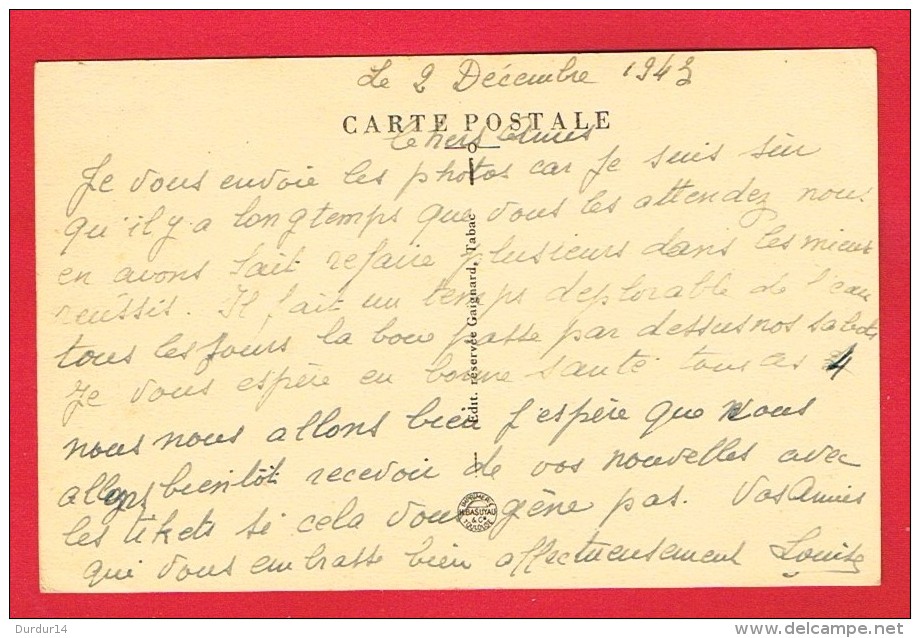 Le 2 Décembre 1943
CARTE POSTALE
Chers Amis
Je vous envoie les photos car je suis sûr
qu'il y a longtemps que vous les attendez nous
en avons fait refaire plusieurs dans les mieux
réussis. Il fait un temps déplorable de l'eau
tous les jours la boue passe par dessus nos sabots
Je vous espère en bonne santé tous les 4
nous nous allons bien J'espère que Nous
allons bientôt recevoir de vos nouvelles avec
les tikets si cela vous gène pas. Vos Amies
qui vous embrasse bien affectueusement Louise
Edit. réservée Gaignard, Tabac
IMPRIMERIE
H. BASUYAU
& Cie
TOULOUSE
Durdur14